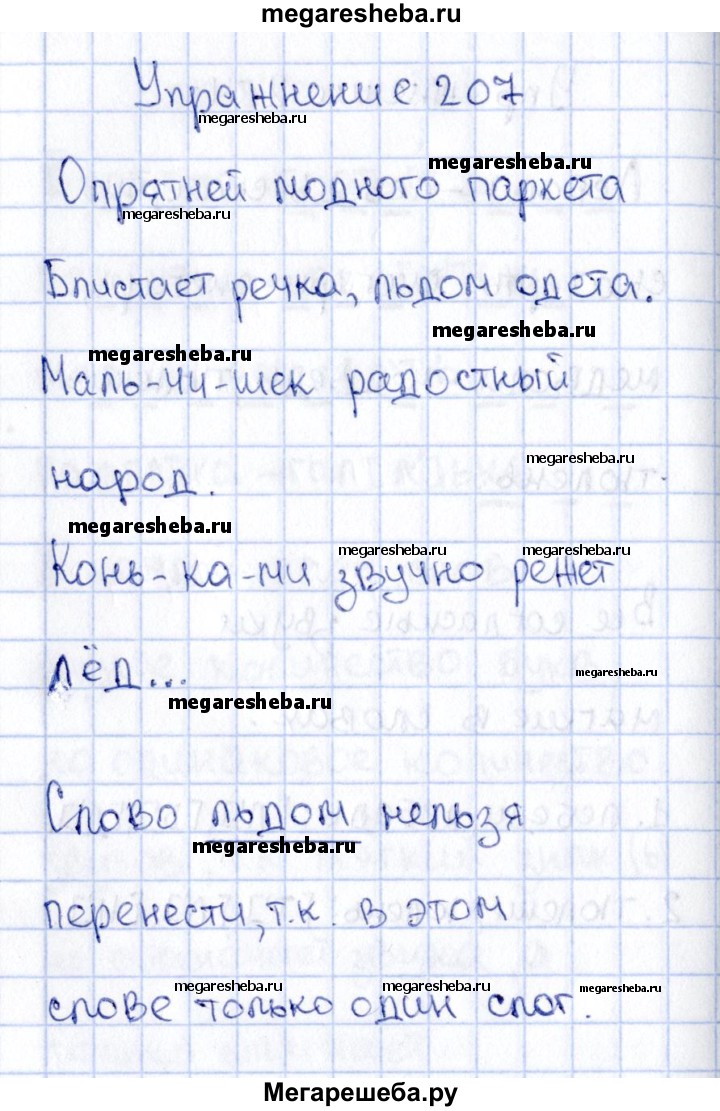 megaresheba.ru
Упражнение 207
megaresheba.ru
megaresheba.ru
Опрятней модного паркета
megaresheba.ru
Блистает речка, льдом одета.
megaresheba.ru
megaresheba.ru
Маль-чи-шек радостный
megaresheba.ru
народ.
megaresheba.ru
megaresheba.ru megaresheba.ru
Конь-ка-ми звучно режет
лёд...
megaresheba.ru
megaresheba.ru
Слово льдом нельзя
megaresheba.ru
перенести, т.к. в этом
megaresheba.ru megaresheba.ru megaresheba.ru
слове только один слог.
Мегарешеба.ру